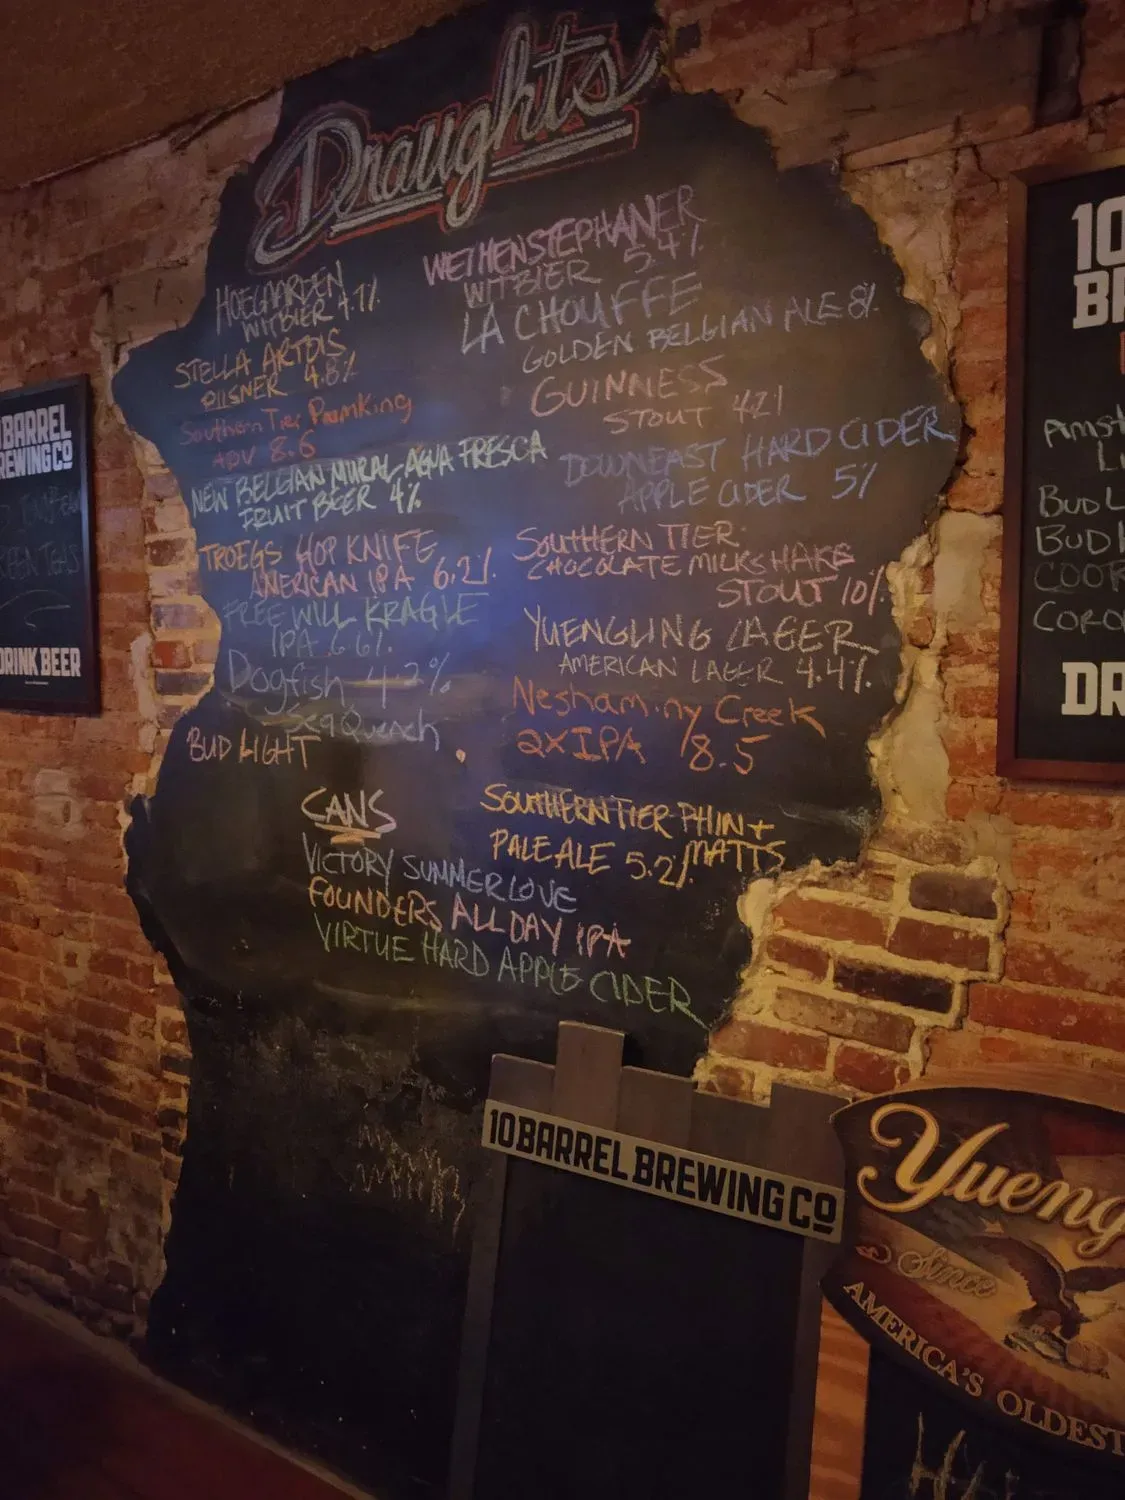 Draughts
HOEGAARDEN
WITBIER 4.9%
STELLA ARTOIS
PILSNER 4.8%
Southern Tier PumKing
ABV 8.6
NEW BELGIAN MURAL AGUA FRESCA
FRUIT BEER 4%
TROEGS HOP KNIFE
AMERICAN IPA 6.2%
FREE WILL KRAGLE
IPA 6.6%
Dogfish 4.2%
SeaQuench
BUD LIGHT
WEIHENSTEPHANER
WITBIER 5.4%
LA CHOUFFE
GOLDEN BELGIAN ALE 8%
GUINNESS
STOUT 4.2%
DOWNEAST HARD CIDER
APPLE CIDER 5%
SOUTHERN TIER
CHOCOLATE MILKSHAKE
STOUT 10%
YUENGLING LAGER
AMERICAN LAGER 4.4%
Neshaminy Creek
2XIPA 8.5
SOUTHERN TIER PHIN+
MATTS
PALE ALE 5.2%
CANS
VICTORY SUMMERLOVE
FOUNDERS ALL DAY IPA
VIRTUE HARD APPLE CIDER
10 BARREL BREWING CO
BARREL
BREWING CO
DRINK BEER
10
BUD L
BUD
COOR
CORO
DR
Yueng
Since
AMERICA'S OLDEST